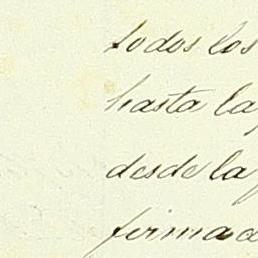 todos los
hasta la
desde la
firmad